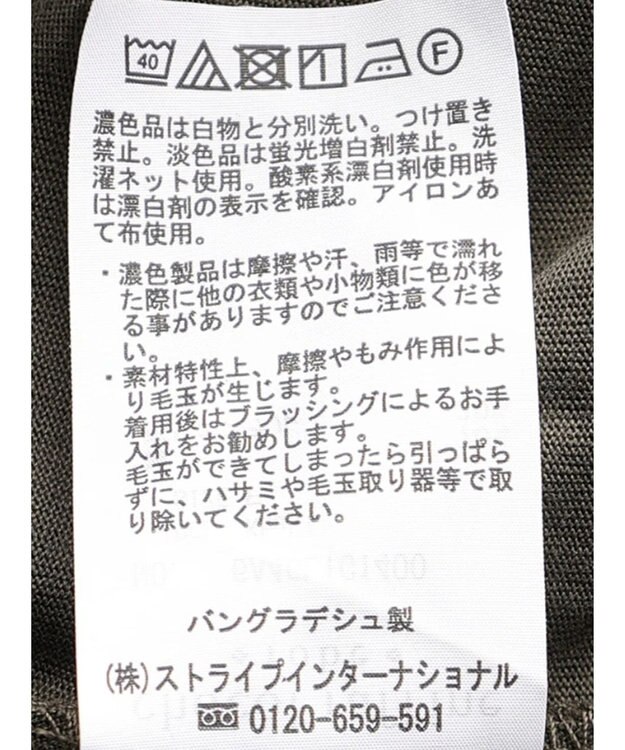 40 F
濃色品は白物と分別洗い。つけ置き
禁止。淡色品は蛍光増白剤禁止。洗
濯ネット使用。酸素系漂白剤使用時
は漂白剤の表示を確認。アイロンあ
て布使用。
・濃色製品は摩擦や汗、雨等で濡れ
た際に他の衣類や小物類に色が移
る事がありますのでご注意くださ
い。
・素材特性上、摩擦やもみ作用によ
り毛玉が生じます。
着用後はブラッシングによるお手
入れをお勧めします。
毛玉ができてしまったら引っぱら
ずに、ハサミや毛玉取り器等で取
り除いてください。
バングラデシュ製
(株)ストライプインターナショナル
0120-659-591